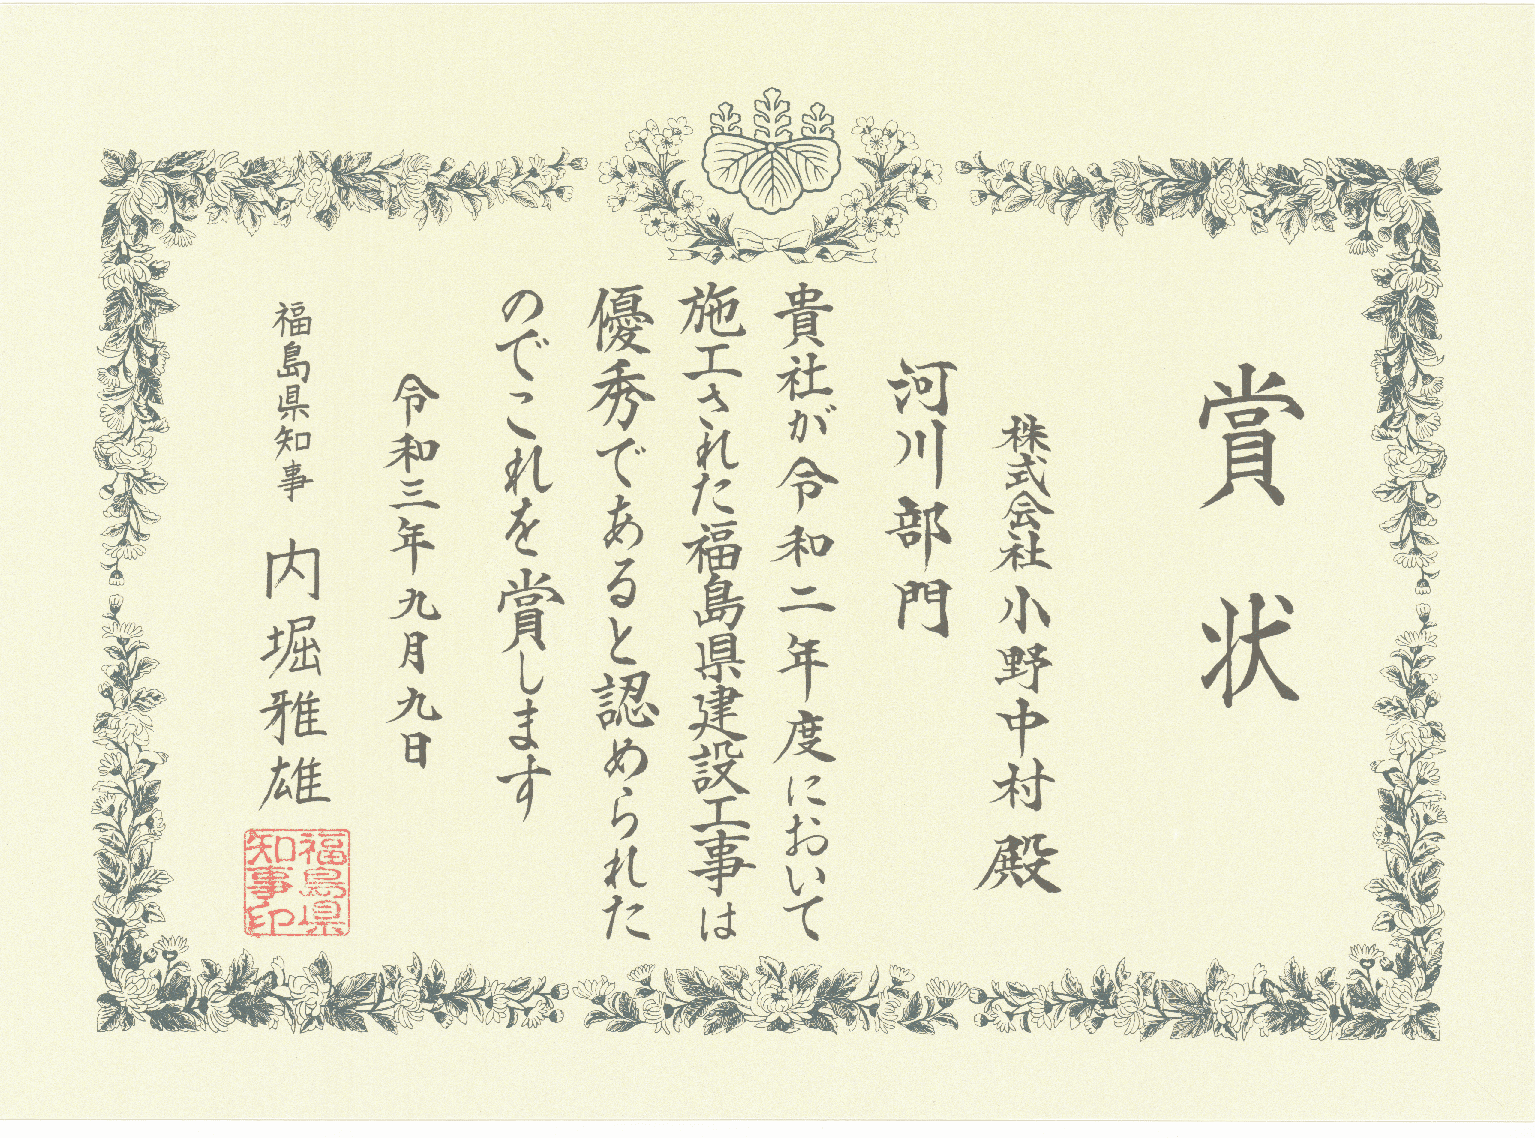 賞状
株式会社小野中村殿
河川部門
貴社が令和二年度において
施工された福島県建設工事は
優秀であると認められた
のでこれを賞します
令和三年九月九日
福島県知事 内堀雅雄
福島県
知事印